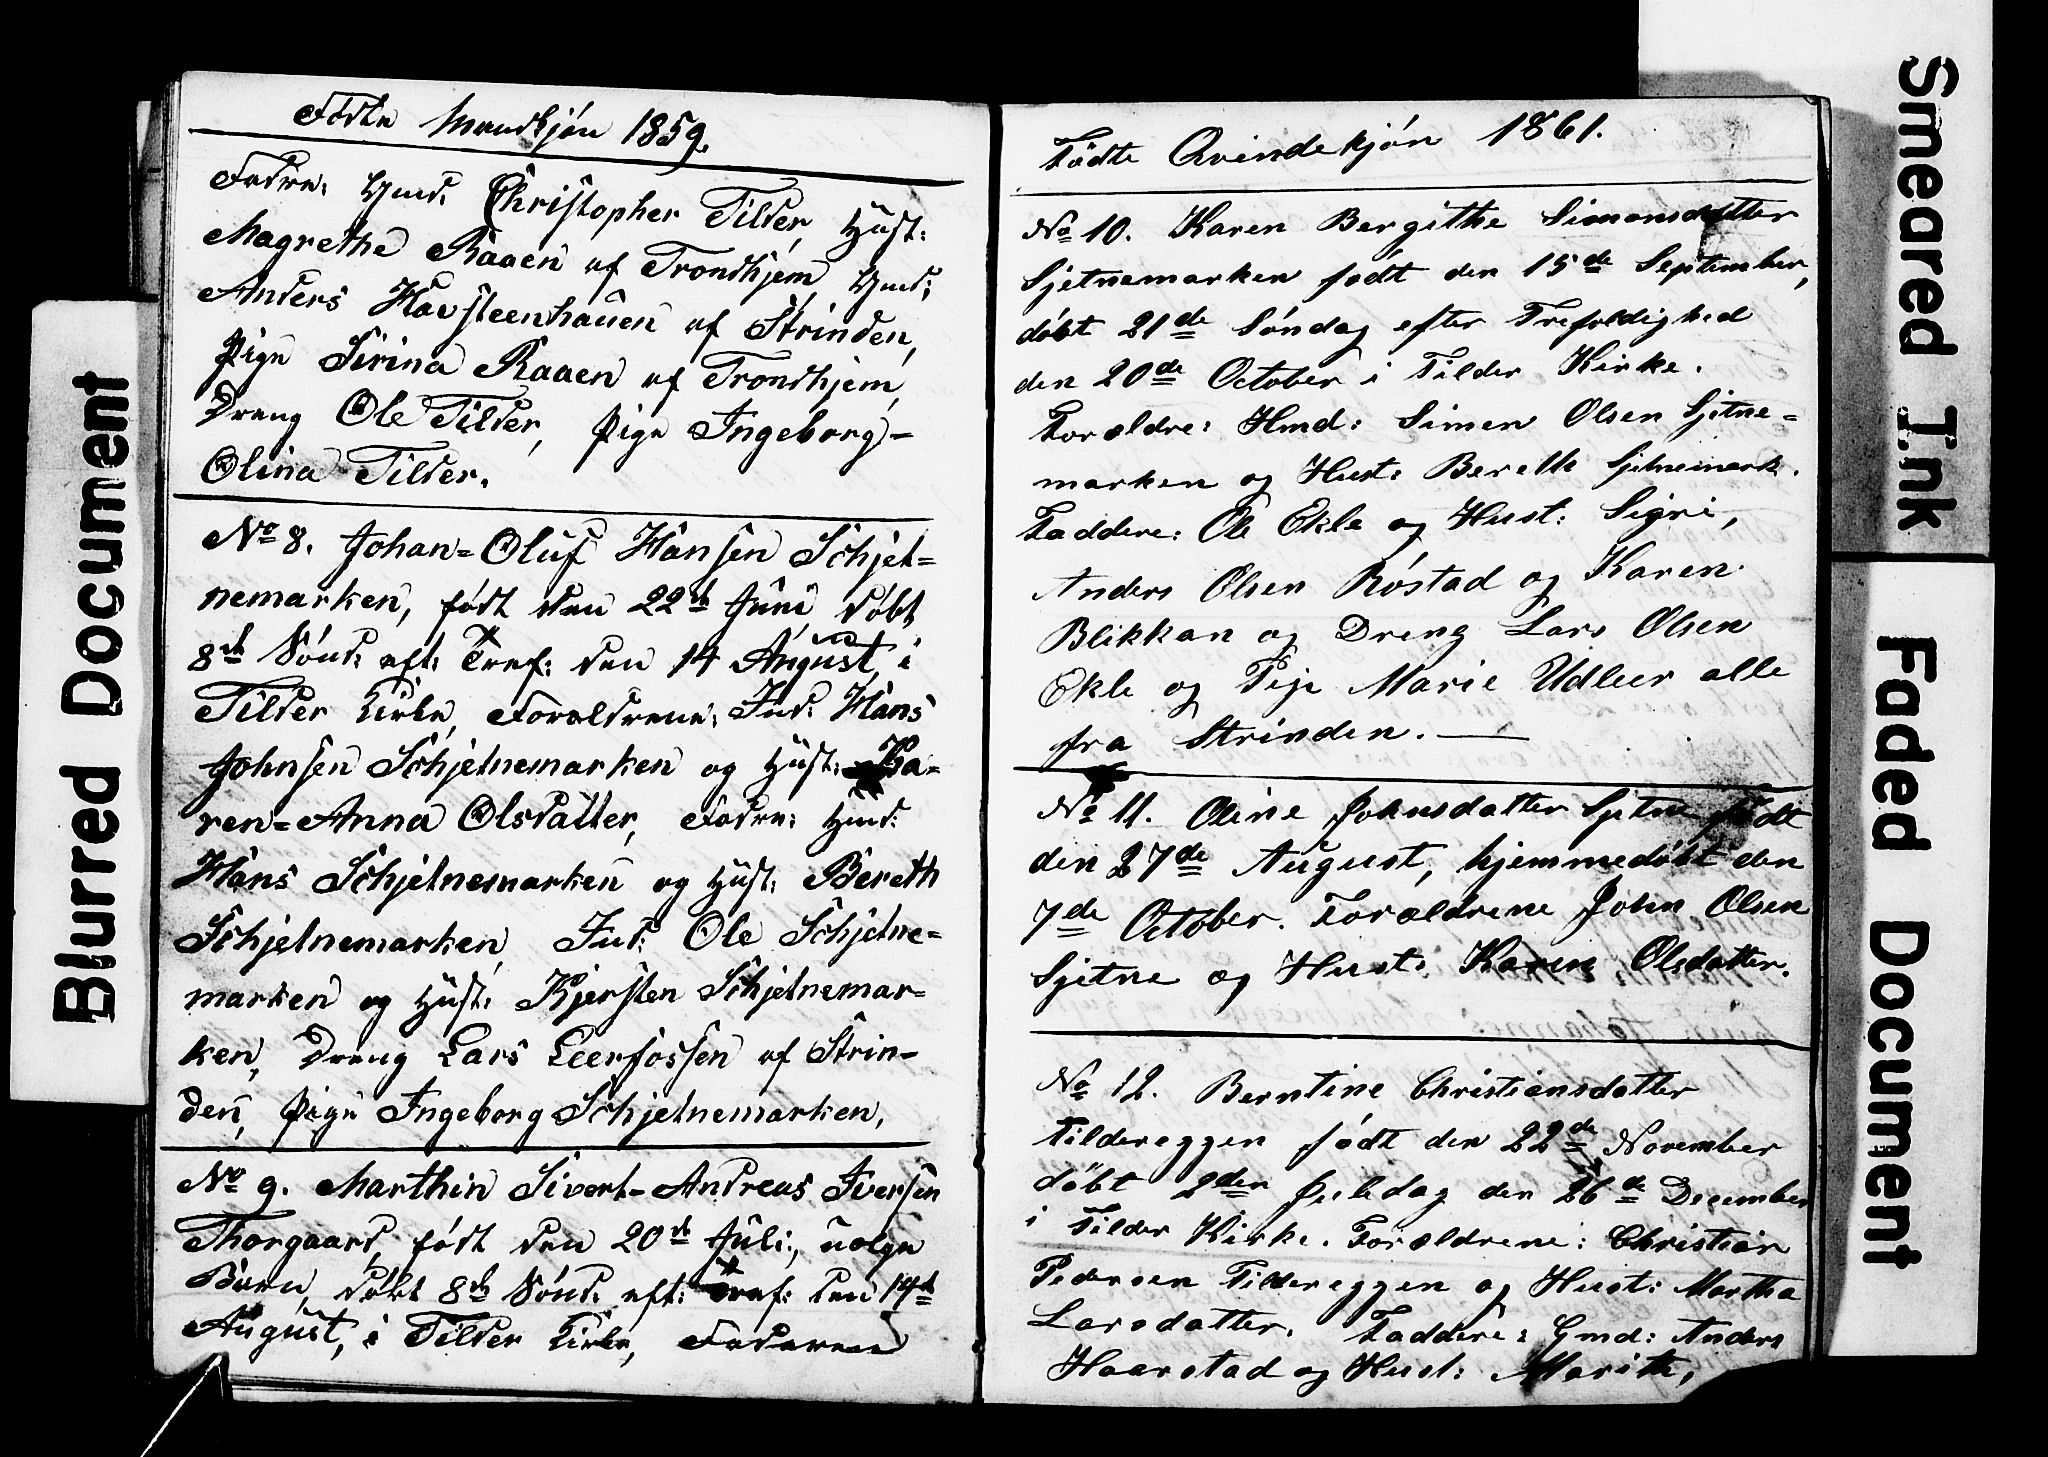 Fødte Mandkjøn 1859.
Faddre: Ymd: Christopher Tilder, Hust:
Magrethe Raaen af Trondhjem, Ymd:
Anders Havsteenhauen af Strinden,
Pige Sirina Raaen af Trondhjem,
Dreng Ole Tilder, Pige Ingeborg-
Olina Tilder.
No 8. Johan=Oluf Hansen Schjet=
nemarken, født den 22de Juni, døbt
8de Sønd: eft: Tref: den 14 August, i
Tilder Kirke, Forældrene: Ind: Hans
Johnsen Schjetnemarken og Hust: Ka=
ren=Anna Olsdatter, Faddre: Hmd:
Hans Schjetnemarken og Hust: Bereth
Schjetnemarken, Ind: Ole Schjetne=
marken og Hust: Kjersten Schjetnemar-
ken, Dreng Lars Leerfossen af Strin-
den, Pige Ingeborg Schjetnemarken.
No 9. Marthin Sivert-Andreas Iversen
Thorgaard, født den 20de Juli, uægte
Barn, døbt 8de Sønd: eft: Tref: den 14de
August, i Tilder Kirke,
Fødte Qvindekjøn 1861.
No 10. Karen Bergithe Simonsdatter
Sjetnemarken født den 15de September,
døbt 21de Søndag efter Trefoldighed
den 20de October i Tilder Kirke.
Forældre: Hmd: Simen Olsen Sjetne=
marken og Hust: Bereth Sjetnemark.
Faddere: Ole Ekle og Hust: Sigri,
Anders Olsen Røstad og Karen
Blikkan og Dreng Lars Olsen
Ekle og Pige Marie Udleer alle
fra Strinden. —
No 11. Oline Johnsdatter Sjetne født
den 27de August, hjemmedøbt den
7de October. Forældrene John Olsen
Sjetne og Hust: Karen Olsdatter.
No 12. Berntine Christiansdatter
Tildereggen født den 22de November
døbt 2den Juledag den 26de December
i Tilder Kirke. Forældrene: Christian
Pedersen Tildereggen og Hust: Martha
Larsdatter. Faddere: Gmd: Anders
Haarstad og Hust: Marith,
Blurred Document
Smeared Ink
Faded Document